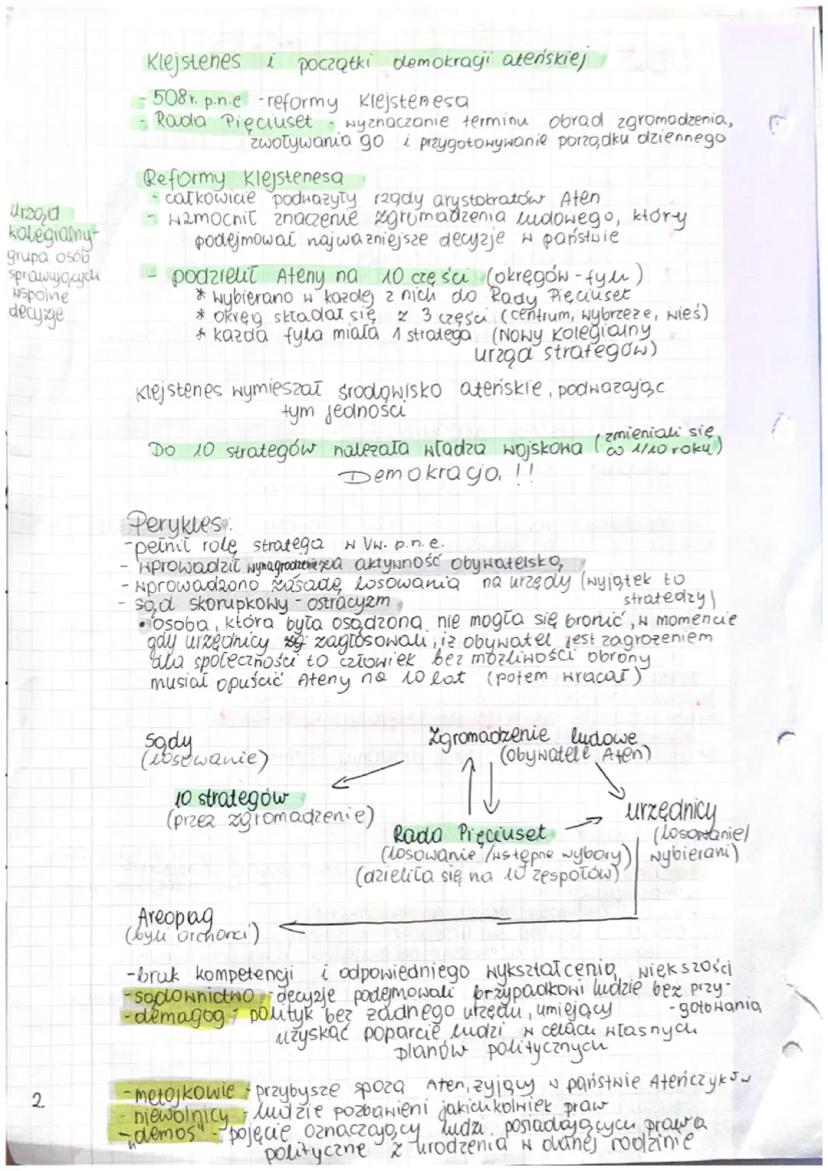 Klejstenes i początki demokracji ateńskiej
- 508r. p.n.e - reformy Klejstenesa
- Rada Pięciuset - wyznaczanie terminu obrad zgromadzenia,
zwoływania go i przygotowywanie porządku dziennego
Reformy Klejstenesa
- całkowicie podważyły rządy arystokratów Aten
- wzmocnił znaczenie zgromadzenia ludowego, który
podejmował najważniejsze decyzje w państwie
Urząd
kolegialny-
grupa osób
sprawujących
wspólne
decyzje
- podzielił Ateny na 10 części (okręgów - fyli)
* wybierano w każdej z nich do Rady Pięciuset
* okręg składał się z 3 części (centrum, wybrzeże, wieś)
* każda fyla miała 1 stratega (Nowy Kolegialny
urząd strategów)
Klejstenes wymieszał środowisko ateńskie, podważając
tym jedności
Do 10 strategów należała władza wojskowa (zmieniali się
co 1/10 roku)
Demokracja !!
Perykles:
- pełnił rolę stratega w Vw. p.n.e.
- wprowadził wynagrodzenie za aktywność obywatelską
- wprowadzono zasadę losowania na urzędy (wyjątek to
stratedzy)
- sąd skorupkowy - ostracyzm
• osoba, która była osądzona nie mogła się bronić, w momencie
gdy urzędnicy zagłosowali, iż obywatel jest zagrożeniem
dla społeczności to człowiek bez możliwości obrony
musiał opuścić Ateny na 10 lat (potem wracał)
Sądy
(losowanie)
Zgromadzenie ludowe
(obywatele Aten)
10 strategów
(przez zgromadzenie)
Rada Pięciuset
(losowanie/wstępne wybory)
(dzieliła się na 10 zespołów)
urzędnicy
(losowanie/
wybierani)
Areopag
(byli archonci)
- brak kompetencji i odpowiedniego wykształcenia większości
- sądownictwo - decyzje podejmowali przypadkowi ludzie bez przy-
-gotowania
- demagog - polityk bez żadnego urzędu, umiejący
uzyskać poparcie ludzi w celach własnych
planów politycznych
- metojkowie - przybysze spoza Aten, żyjący w państwie Ateńczyków
- niewolnicy - ludzie pozbawieni jakichkolwiek praw
- "demos" - pojęcie oznaczający ludzi posiadających prawa
polityczne z urodzenia w danej rodzinie
2